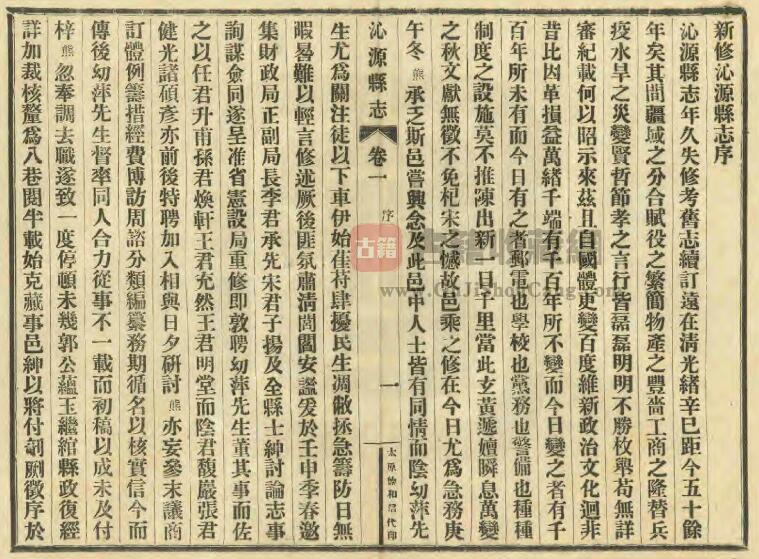 新修沁源縣志序
沁源縣志年久失修考舊志續訂遠在清光緒辛巳距今五十餘
年矣其間疆域之分合賦役之繁簡物產之豐嗇工商之隆替兵
疫水旱之災變賢哲節孝之言行皆磊磊明明不勝枚舉苟無詳
審紀載何以昭示來茲且自國體更變百度維新政治文化迥非
昔比因革損益萬緒千端有千百年所不變而今日變之者有千
百年所未有而今日有之者郵電也學校也黨務也警備也種種
制度之設施莫不推陳出新一日千里當此玄黃遞嬗瞬息萬變
之秋文獻無徵不免杞宋之憾故邑乘之修在今日尤爲急務庚
午冬熊承乏斯邑嘗興念及此邑中人士皆有同情而陰幼萍先
沁源縣志
卷一
序
一
太原協和營代印
生尤爲關注徒以下車伊始萑苻肆擾民生凋敝拯急籌防日無
暇晷難以輕言修述厥後匪氛肅清閭閻安謐爰於壬申季春邀
集財政局正副局長李君承先宋君子揚及全縣士紳討論志事
詢謀僉同遂呈准省憲設局重修即敦聘幼萍先生董其事而佐
之以任君升甫孫君煥軒王君充然王君明堂而陰君馥嚴張君
健光諸碩彥亦前後特聘加入相與日夕研討熊亦妄參末議商
訂體例籌措經費博訪周諮分類編纂務期循名以核實信今而
傳後幼萍先生督率同人合力從事不一載而初稿以成未及付
梓熊忽奉調去職遂致一度停頓未幾郭公蘊玉繼綰縣政復經
詳加裁核釐爲八卷閱半載始克蕆事邑紳以將付剞劂徵序於
古籍